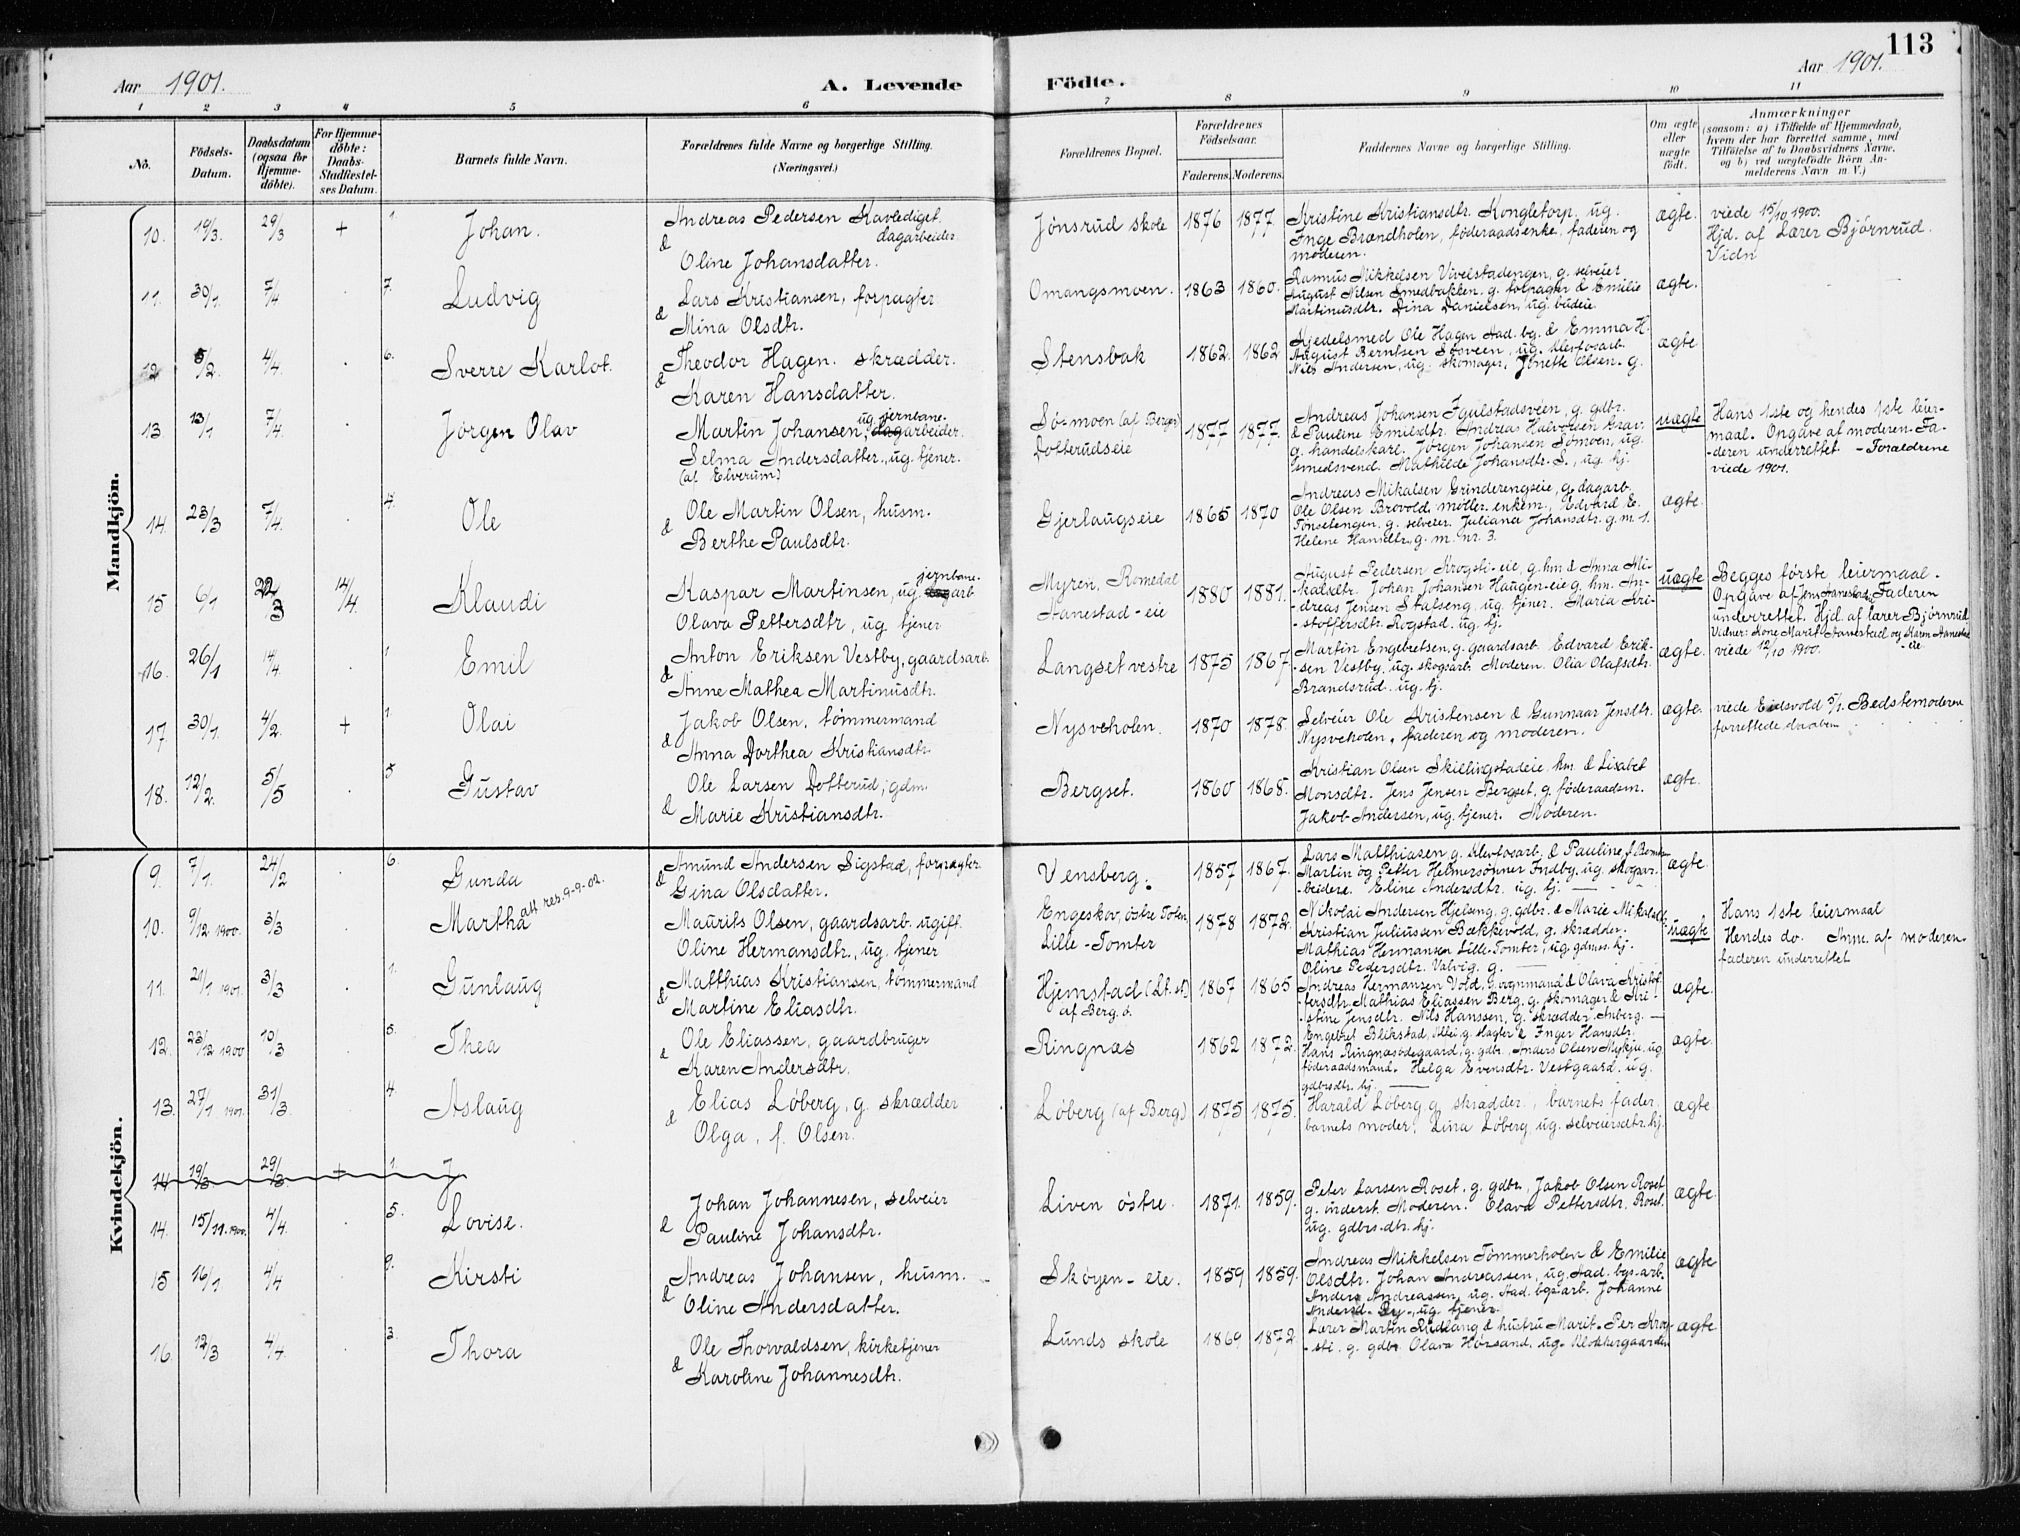 113
Aar 1901.
A. Levende Födte.
Aar 1901.
1 2 3 4 5 6 7 8 9 10 11
No.
Födsels-Datum.
Daabsdatum (ogsaa for Hjemme-döbte).
For Hjemme-döbte: Daabs-Stadfestel-ses Datum.
Barnets fulde Navn.
Forældrenes fulde Navne og borgerlige Stilling.
(Næringsvei.)
Forældrenes Bopæl.
Forældrenes Födselsaar.
Faderens. Moderens.
Faddernes Navne og borgerlige Stilling.
Om ægte eller uægte födt.
Anmærkninger
(saasom: a) i Tilfælde af Hjemmedaab,
hvem der har forrettet samme, med
Tilföielse af to Daabsvidners Navne,
og b) ved uægtefödte Börn An-
melderens Navn m. V.)
Mandkjön.
10. 19/3. 29/3 + 1. Johan.
Andreas Pedersen Kavlediget.
dagarbeider.
& Oline Johansdatter.
Jønsrud skole 1876 1877.
Kristine Kristiansdtr. Kongletorp, ug.
Inge Brændholen, føderaadsenke, faderen og
moderen.
ægte.
viede 15/10 1900.
Hjd. af Lærer Bjørnrud.
Vidn
11. 30/1. 7/4 . 7. Ludvig
Lars Kristiansen, forpagter
& Mina Olsdtr.
Omangsmoen. 1863 1860.
Rasmus Mikkelsen Vivelstadengen, g. selveier
August Nilsen Smedbakken. g. forpagter & Emilie
Martinusdtr. Dina Danielsen, ug. budeie.
ægte.
12 5/2. 4/4. . 6. Sverre Karlot.
Theodor Hagen. skrædder.
& Karen Hansdatter.
Stensbak 1862. 1862
Kjedelsmed Ole Hagen Aad. bg. & Emma H.
August Berntsen Søsveen, ug. Klevfosarb.
Nils Andersen, ug. skomager, Jonette Olsen. g.
ægte
13 13/1 7/4. . Jørgen Olav
Martin Johansen, ug. jernbane-dagarbeider.
Selma Andersdatter, ug. tjener.
(af Elverum)
Sø-moen (af Berger)
Dotterudseie
1877 1877.
Andreas Johansen Fgulstadsveen, g. gdbr.
& Pauline Emilsdtr. Andreas Halvorsen Grav.
g. handelskarl. Jørgen Johansen Sømoen, ug.
smedsvend. Mathilde Johansdtr. S., ug. hj.
uægte
Hans 1ste og hendes 1ste leier-
maal. Opgave af moderen. Fa-
-deren underrettet. - Forældrene
viede 1901.
14. 23/3 7/4. . 4. Ole
Ole Martin Olsen, husm.
& Berthe Paulsdtr.
Gjerlaugseie 1865 1870
Andreas Mikalsen Grinderengseie, g. dagarb.
Ole Olsen Brovold, møller, enkem., Edvard E.
Tønsetengen. g. selveier. Juliana Johansdtr. g. m. 1.
Helene Hansdtr. g. m. nr. 3.
ægte.
15 6/1 22/3 14/4. Klaudi
Kaspar Martinsen, ug. jernbane-dagarb
Olava Pettersdtr, ug tjener
Myren, Romedal
Aanestad-eie
1880 1881.
August Pedersen Krogsti-eie, g. hm & Anna Mi-
kalsdtr. Johan Johansen Haugen-eie g. hm. An-
-dreas Jensen Stalseng, ug. tjener. Maria Kri-
-stoffersdtr. Rogstad. ug. hj.
uægte
Begges første leiermaal.
Opgave af Jens Aanestad. Faderen
underrettet. Hjd. af lærer Bjørnrud
Vidner: Kone Marit Aanestad og Karen Aanestad
-eie
16. 26/1 14/4. . 1 Emil
Anton Eriksen Vestby, gaardsarb.
& Anne Mathea Martinusdtr.
Langset vestre 1875 1867.
Martin Engebretsen, g. gaardsarb. Edvard Erik-
-sen Vestby, ug. skogsarb. Moderen. Olia Olafsdtr.
Brandsrud. ug. hj.
ægte.
viede 12/10 1900.
17 30/1. 4/2. + 1. Olai
Jakob Olsen. tømmermand
& Anna Dorthea Kristiansdtr.
Nysveholen. 1870 1878.
Selveier Ole Kristensen & Gunnaar Jensdtr.
Nysveholen. faderen og moderen.
ægte.
viede Eidsvold 5/1. Bedstemoderen
forrettede daaben
18. 12/2. 5/5 . 5 Gustav
Ole Larsen Dotterud, gdm.
& Marie Kristiansdtr.
Bergset. 1860 1868.
Kristian Olsen Skillingstadeie, hm. & Lisabet
Monsdtr. Jens Jensen Bergset, g. føderaadsm.
Jakob Andersen, ug. tjener. Moderen.
ægte.
Kvindekjön.
9. 7/1. 24/2 . 6. Gunda
Amund Andersen Sigstad, forpagter
& Gina Olsdatter.
Vensberg. 1857 1867.
Lars Matthiasen g. Klevfosarb. & Pauline f.
Martin og Petter Helmersønner Indby, ug. skogsar-
-beidere. Eline Andersdtr. ug. hj.
ægte.
10. 9/12 1900. 3/3 . Martha att res. 9-9-02.
Maurits Olsen, gaardsarb. ugift
Oline Hermansdtr., ug. tjener
Engeskov, østre Toten
Lille-Tomter
1878 1872.
Nikolai Andersen Hjelseng, g. gdbr. & Marie Mikalsdtr.
Kristian Juliussen Bækkevold, g. skrædder.
Mathias Hermansen Lille-Tomter, ug. gdmss. hj.
Oline Pedersdtr. Valvig. g.
uægte
Hans 1ste leiermaal
Hendes do. Anm. af moderen.
faderen underrettet
11. 21/1 1901. 3/3 . 1. Gunlaug
Matthias Kristiansen, tømmermand
& Martine Eliasdtr.
Hjemstad (Lt. st)
af Berg. ø.
1867 1865
Andreas Hermansen Vold, g. vognmand & Olava Kristof-
-fersdtr. Mathias Eliassen Berg. g. skomager & Kri-
-stine Jensdtr. Nils Hanssen, g. skrædder. Anberg.
ægte.
12. 23/12 1900 10/3 . 5. Thea
Ole Eliassen, gaardbruger
& Karen Andersdtr.
Ringnæs 1862 1872.
Engebret Blikstad, g. slagter & Inger Hansdtr.
Hans Ringnæsødegaard, g. gdbr., Anders Olsen Mykju, ug.
føderaadsmand. Helga Evensdtr. Vestgaard. ug.
gdbrsdtr. hj.
ægte.
13. 27/1 1901. 31/3. . 4. Aslaug
Elias Løberg, g. skrædder
& Olga, f. Olsen.
Løberg (af Berg) 1875 1875.
Harald Løberg g. skrædder, barnets fader,
barnets moder, Lina Løberg ug. selveiersdtr. hj.
ægte
14 19/3. 29/3. + 1. J
14. 15/11. 1900. 4/4 . 5. Lovise.
Johan Johannesen, selveier
& Pauline Johansdtr.
Liven østre. 1871. 1859.
Peter Larsen Roset. g. gdbr. Jakob Olsen Roset
g. inderst. Moderen. Olava Pettersdtr. Roset.
ug. gdbrs.dtr. hj.
ægte.
15 16/1 4/4 . 9. Kirsti
Andreas Johansen, husm.
& Oline Andersdatter.
Skøyen-eie. 1859 1859.
Andreas Mikkelsen Tømmerholen & Emilie
Olsdtr. Johan Andreassen, ug. Aad. bgs-arb.
Anders Andreassen, ug. Aad. bgs arb. Johanne
Andersd. , ug. tjener.
ægte
16. 12/3 4/4. . 3. Thora
Ole Thorvaldsen, kirketjener
& Karoline Johannesdtr.
Lunds skole 1869 1872
Lærer Martin Rudlang & hustru Marit. Per Krog-
-sti. g. gdbr. Olava Hørsand, ug. Klokkergaarden
ægte